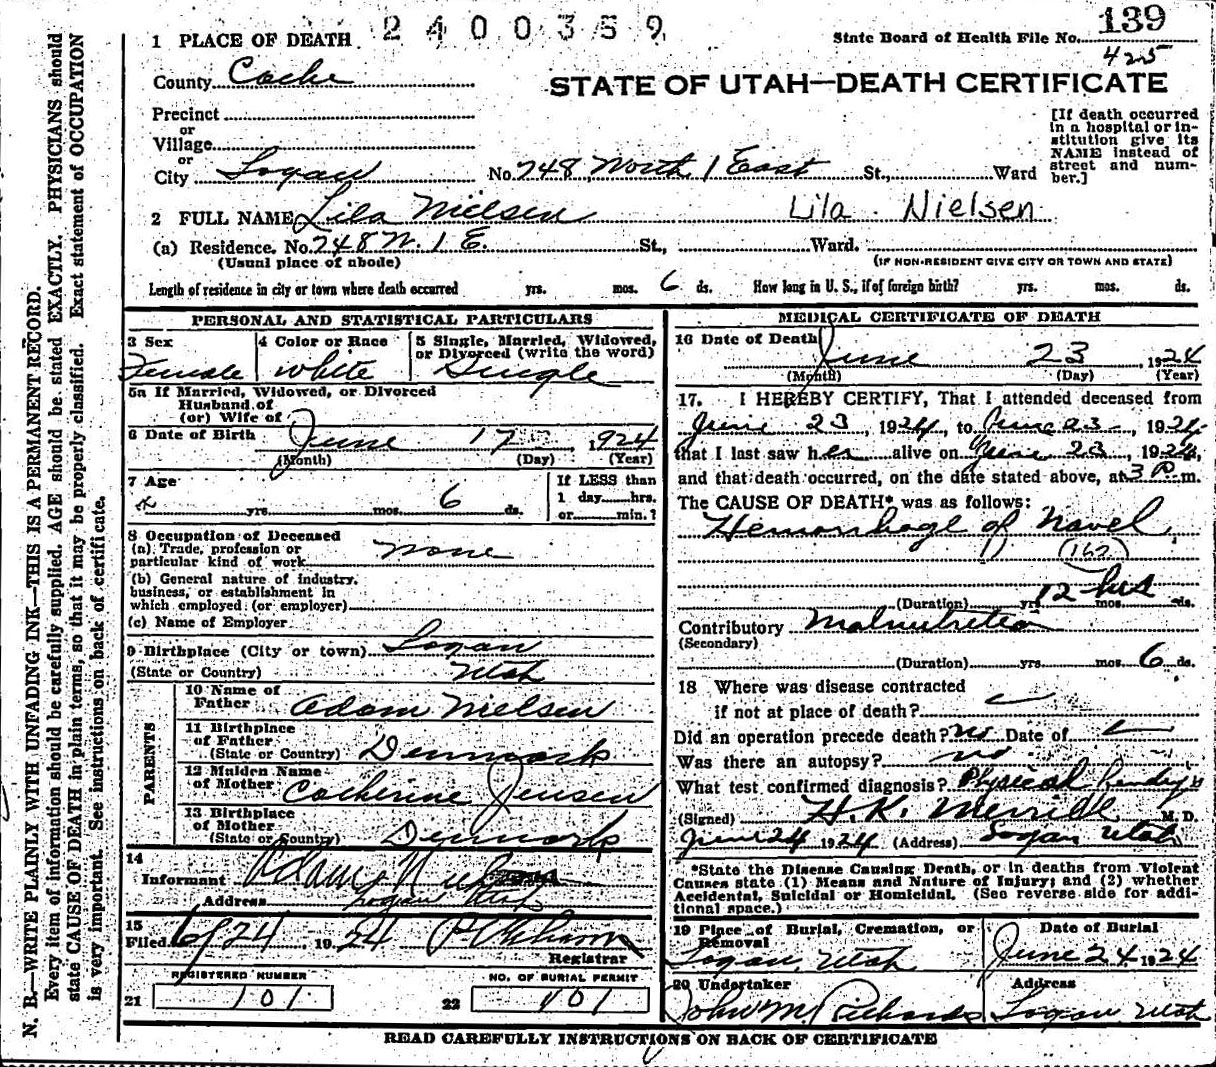 2400369
139
State Board of Health File No.
425
1 PLACE OF DEATH
County Cache
STATE OF UTAH—DEATH CERTIFICATE
Precinct
or
Village
or
City Logan No. 748 North 1 East St., Ward
[If death occurred in a hospital or institution give its NAME instead of street and number.]
2 FULL NAME Lila Nielsen Lila Nielsen
(a) Residence. No. 748 N. 1 E. St., Ward.
(Usual place of abode) (IF NON-RESIDENT GIVE CITY OR TOWN AND STATE)
Length of residence in city or town where death occurred yrs. mos. 6 ds. How long in U. S., if of foreign birth? yrs. mos. ds.
PERSONAL AND STATISTICAL PARTICULARS
3 Sex 4 Color or Race 5 Single, Married, Widowed, or Divorced (write the word)
Female white Single
5a If Married, Widowed, or Divorced
Husband of
(or) Wife of
6 Date of Birth June 17 1924
(Month) (Day) (Year)
7 Age If LESS than
1 day hrs.
yrs. mos. 6 ds. or min.?
8 Occupation of Deceased
(a) Trade, profession or
particular kind of work none
(b) General nature of industry,
business, or establishment in
which employed (or employer)
(c) Name of Employer
9 Birthplace (City or town) Logan
(State or Country) Utah
PARENTS
10 Name of
Father Adam Nielsen
11 Birthplace
of Father
(State or Country) Denmark
12 Maiden Name
of Mother Catherine Jensen
13 Birthplace
of Mother
(State or Country) Denmark
14
Informant Adam
Address Logan Utah
15
Filed 24, 1924
Registrar
REGISTERED NUMBER NO. OF BURIAL PERMIT
21 101 22 101
MEDICAL CERTIFICATE OF DEATH
16 Date of Death June 23, 1924
(Month) (Day) (Year)
17. I HEREBY CERTIFY, That I attended deceased from
June 23, 1924, to June 23, 1924
that I last saw her alive on June 23, 1924,
and that death occurred, on the date stated above, at 3 P.m.
The CAUSE OF DEATH* was as follows:
Hemorrhage of Navel
(162)
(Duration) yrs. 12 hrs mos. ds.
Contributory Malnutrition
(Secondary)
(Duration) yrs. mos. 6 ds.
18 Where was disease contracted
if not at place of death?
Did an operation precede death? no Date of
Was there an autopsy? no
What test confirmed diagnosis? Physical
(Signed) H. K. Merrill M. D.
June 24 1924 (Address) Logan Utah
*State the Disease Causing Death, or in deaths from Violent
Causes state (1) Means and Nature of Injury; and (2) whether
Accidental, Suicidal or Homicidal. (See reverse side for additional space.)
19 Place of Burial, Cremation, or Removal Date of Burial
Logan, Utah June 24 1924
20 Undertaker Address
John M. Richards Logan Utah
READ CAREFULLY INSTRUCTIONS ON BACK OF CERTIFICATE
N. B.—WRITE PLAINLY WITH UNFADING INK—THIS IS A PERMANENT RECORD.
Every item of information should be carefully supplied. AGE should be stated EXACTLY. PHYSICIANS should
state CAUSE OF DEATH in plain terms, so that it may be properly classified. Exact statement of OCCUPATION
is very important. See instructions on back of certificate.